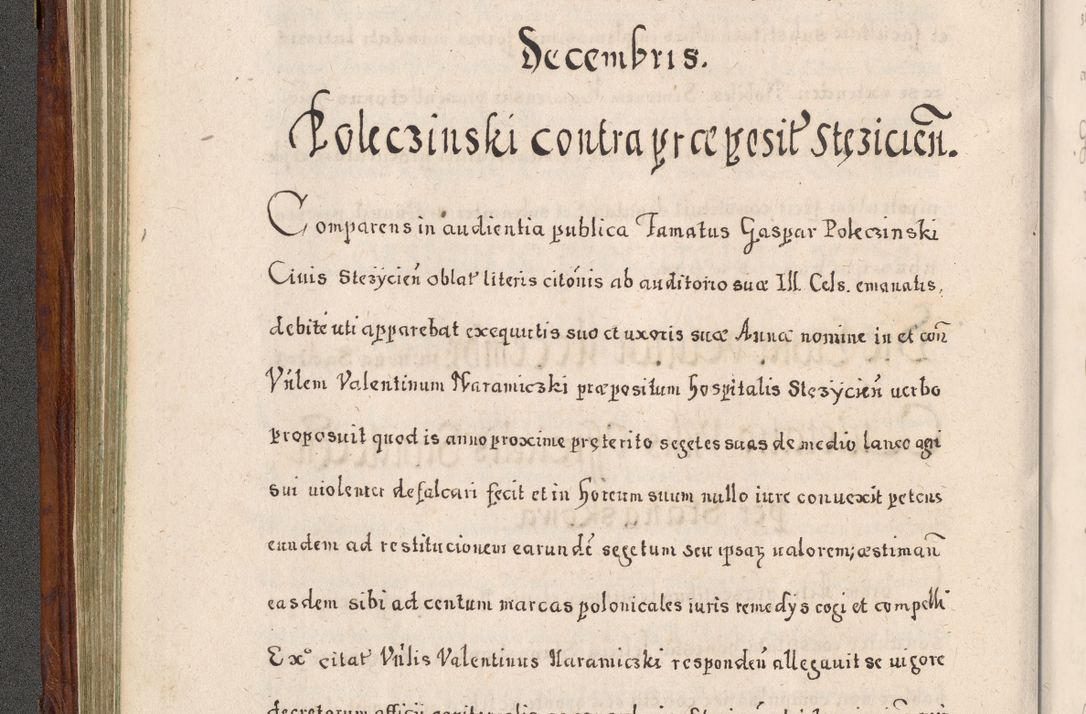 Decembris.
Poleczinski contra præposit Stęziciēn.
Comparens in audientia publica Famatus Gaspar Poleczinski
Ciuis Stezycień oblat literis citōnis ab auditorio suæ Ill. Cels. emanatis,
debite uti apparebat exequutis suo et uxoris suæ Annæ nomine in et coñ
Vñlem Valentinum Naramiczki præpositum hospitalis Stęzycień uerbo
proposuit quod is anno proxime pręterito segetes suas de medio laneo agri
sui uiolenter defalcari fecit et in horeum suum nullo iure conuexit petens
eundem ad restitucionem earundē segetum seu ipsaꝝ ualorem; æstimañ
easdem sibi ad centum marcas polonicales iuris remedys cogi et compelli
Exº citat Vñlis Valentinus Naramiczki respondeñ allegauit se uigore
decretorum officii